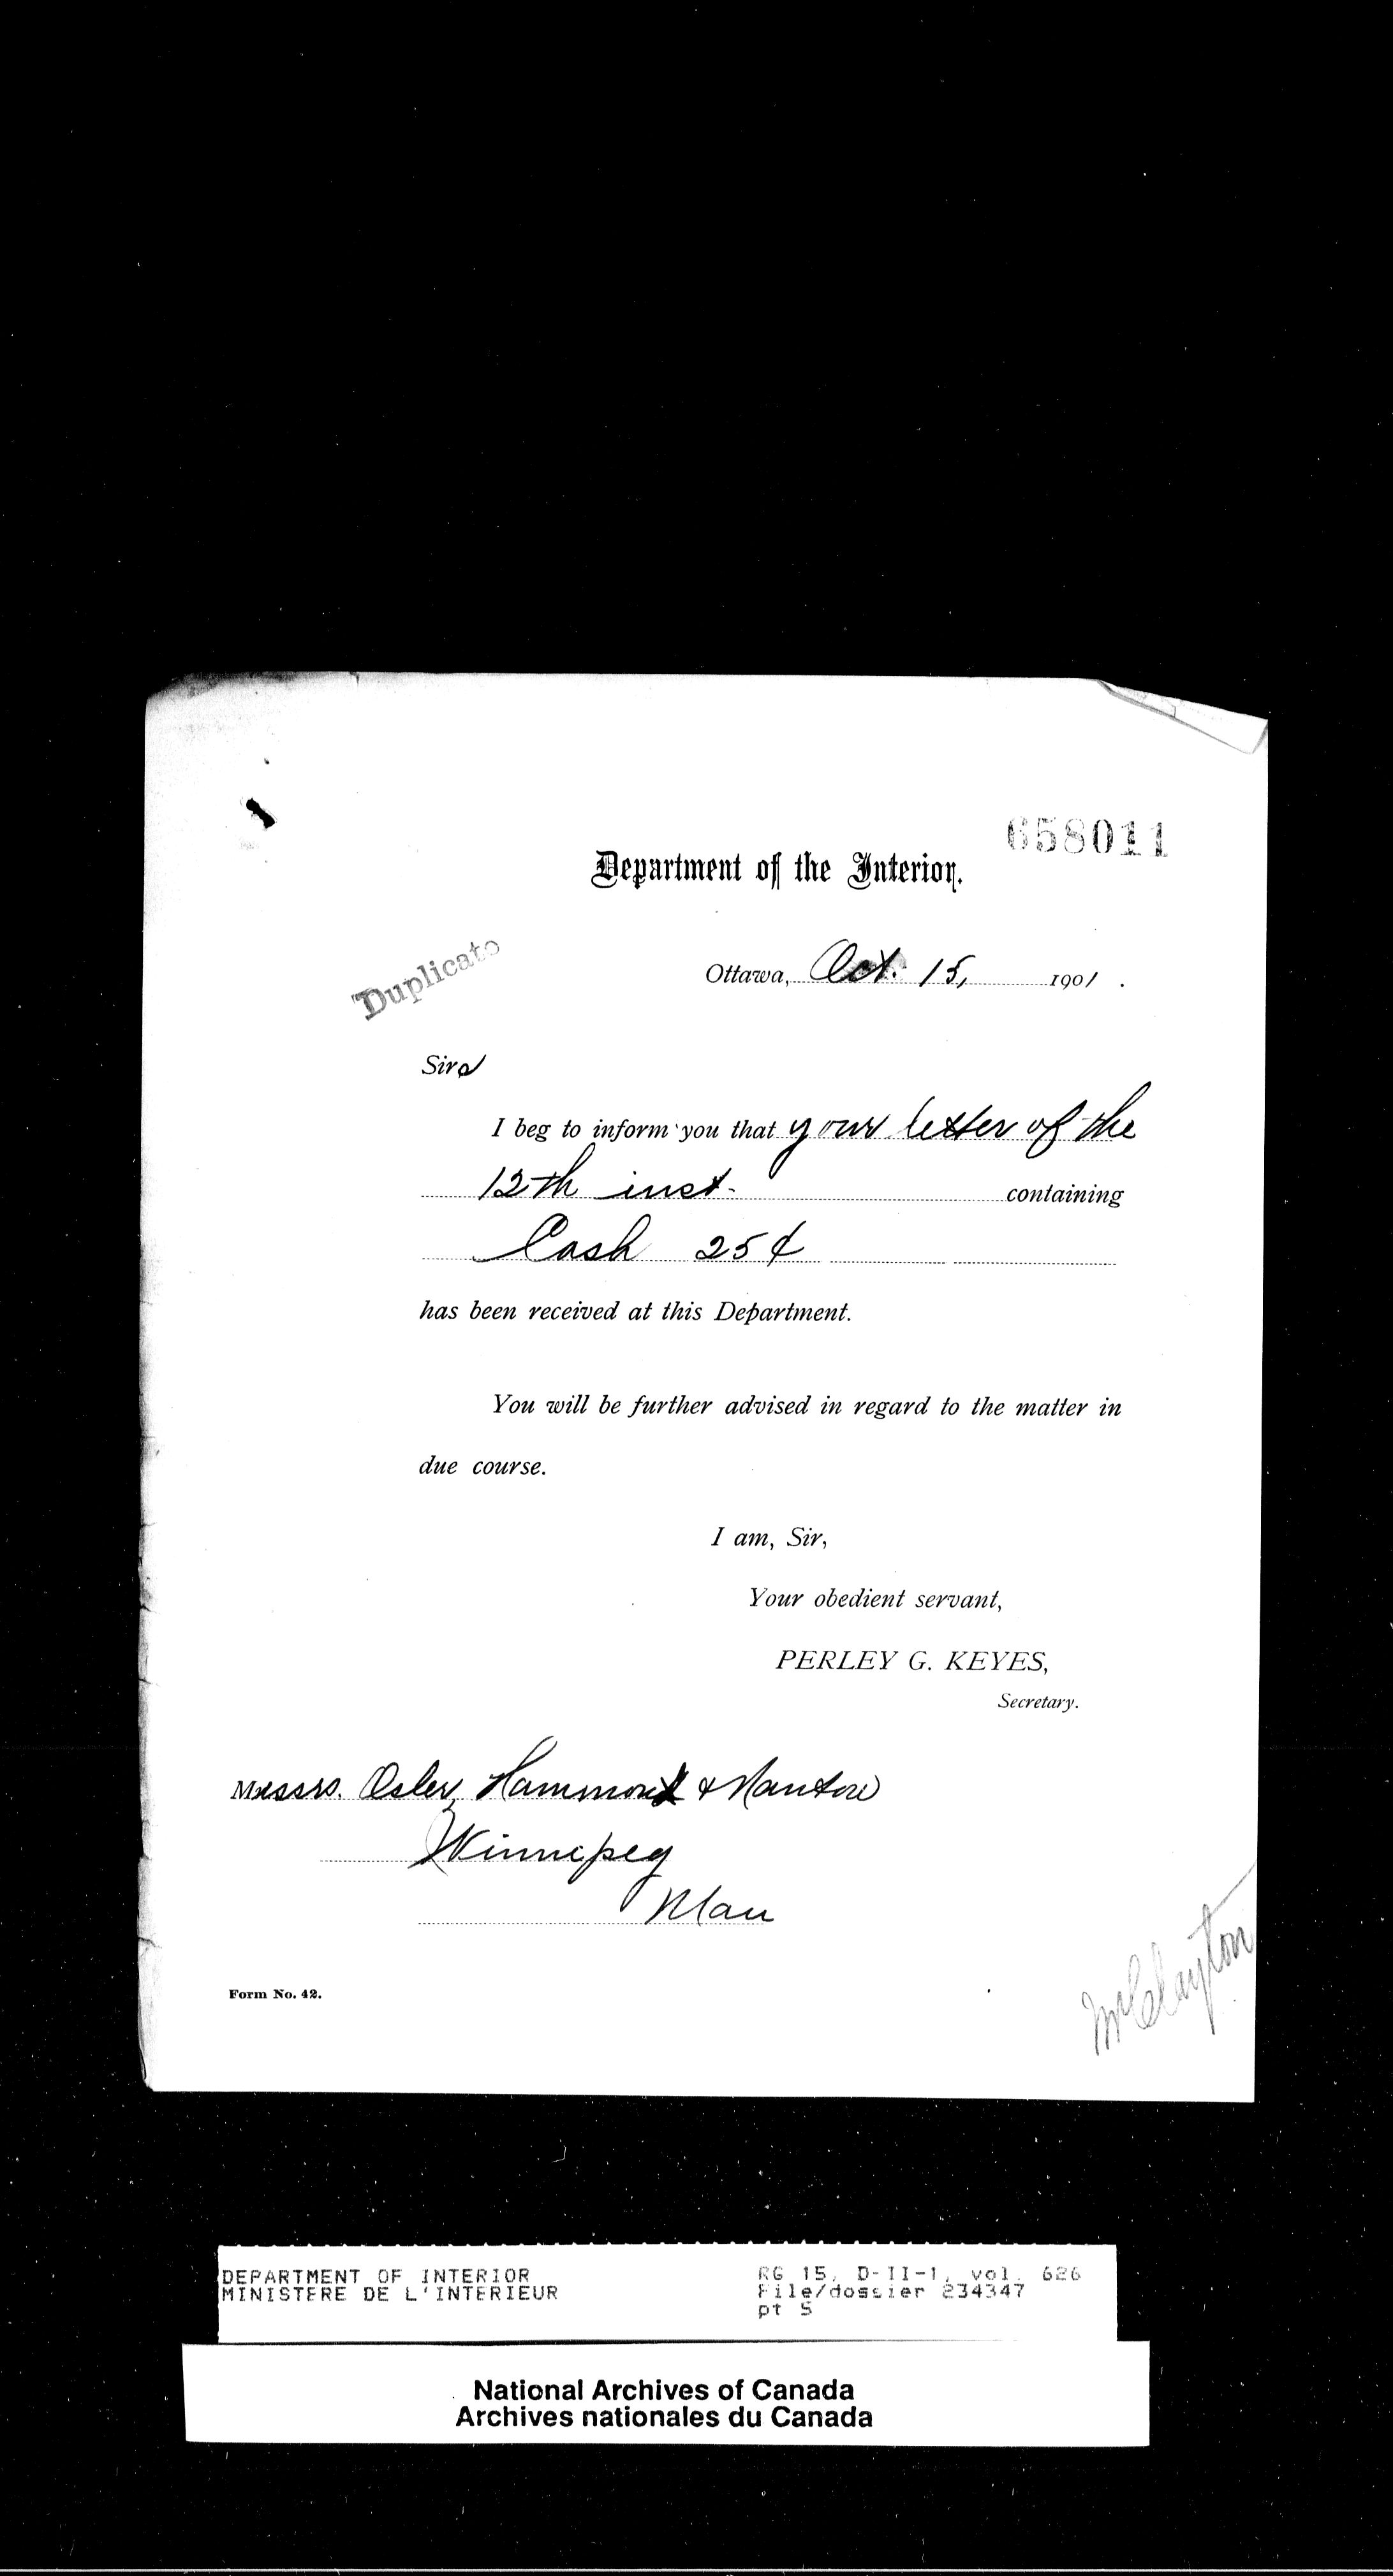 658011
Department of the Interior.
Duplicate
Ottawa, Oct. 15, 1901.
Sirs
I beg to inform you that your letter of the
12th inst. containing
Cash 25¢
has been received at this Department.
You will be further advised in regard to the matter in
due course.
I am, Sir,
Your obedient servant,
PERLEY G. KEYES,
Secretary.
Messrs. Osler, Hammond & Nanton
Winnipeg
Man
Mr Clayton
Form No. 42.
DEPARTMENT OF INTERIOR
MINISTERE DE L'INTERIEUR
RG 15, D-II-1, vol. 626
File/dossier 234347
pt 5
National Archives of Canada
Archives nationales du Canada